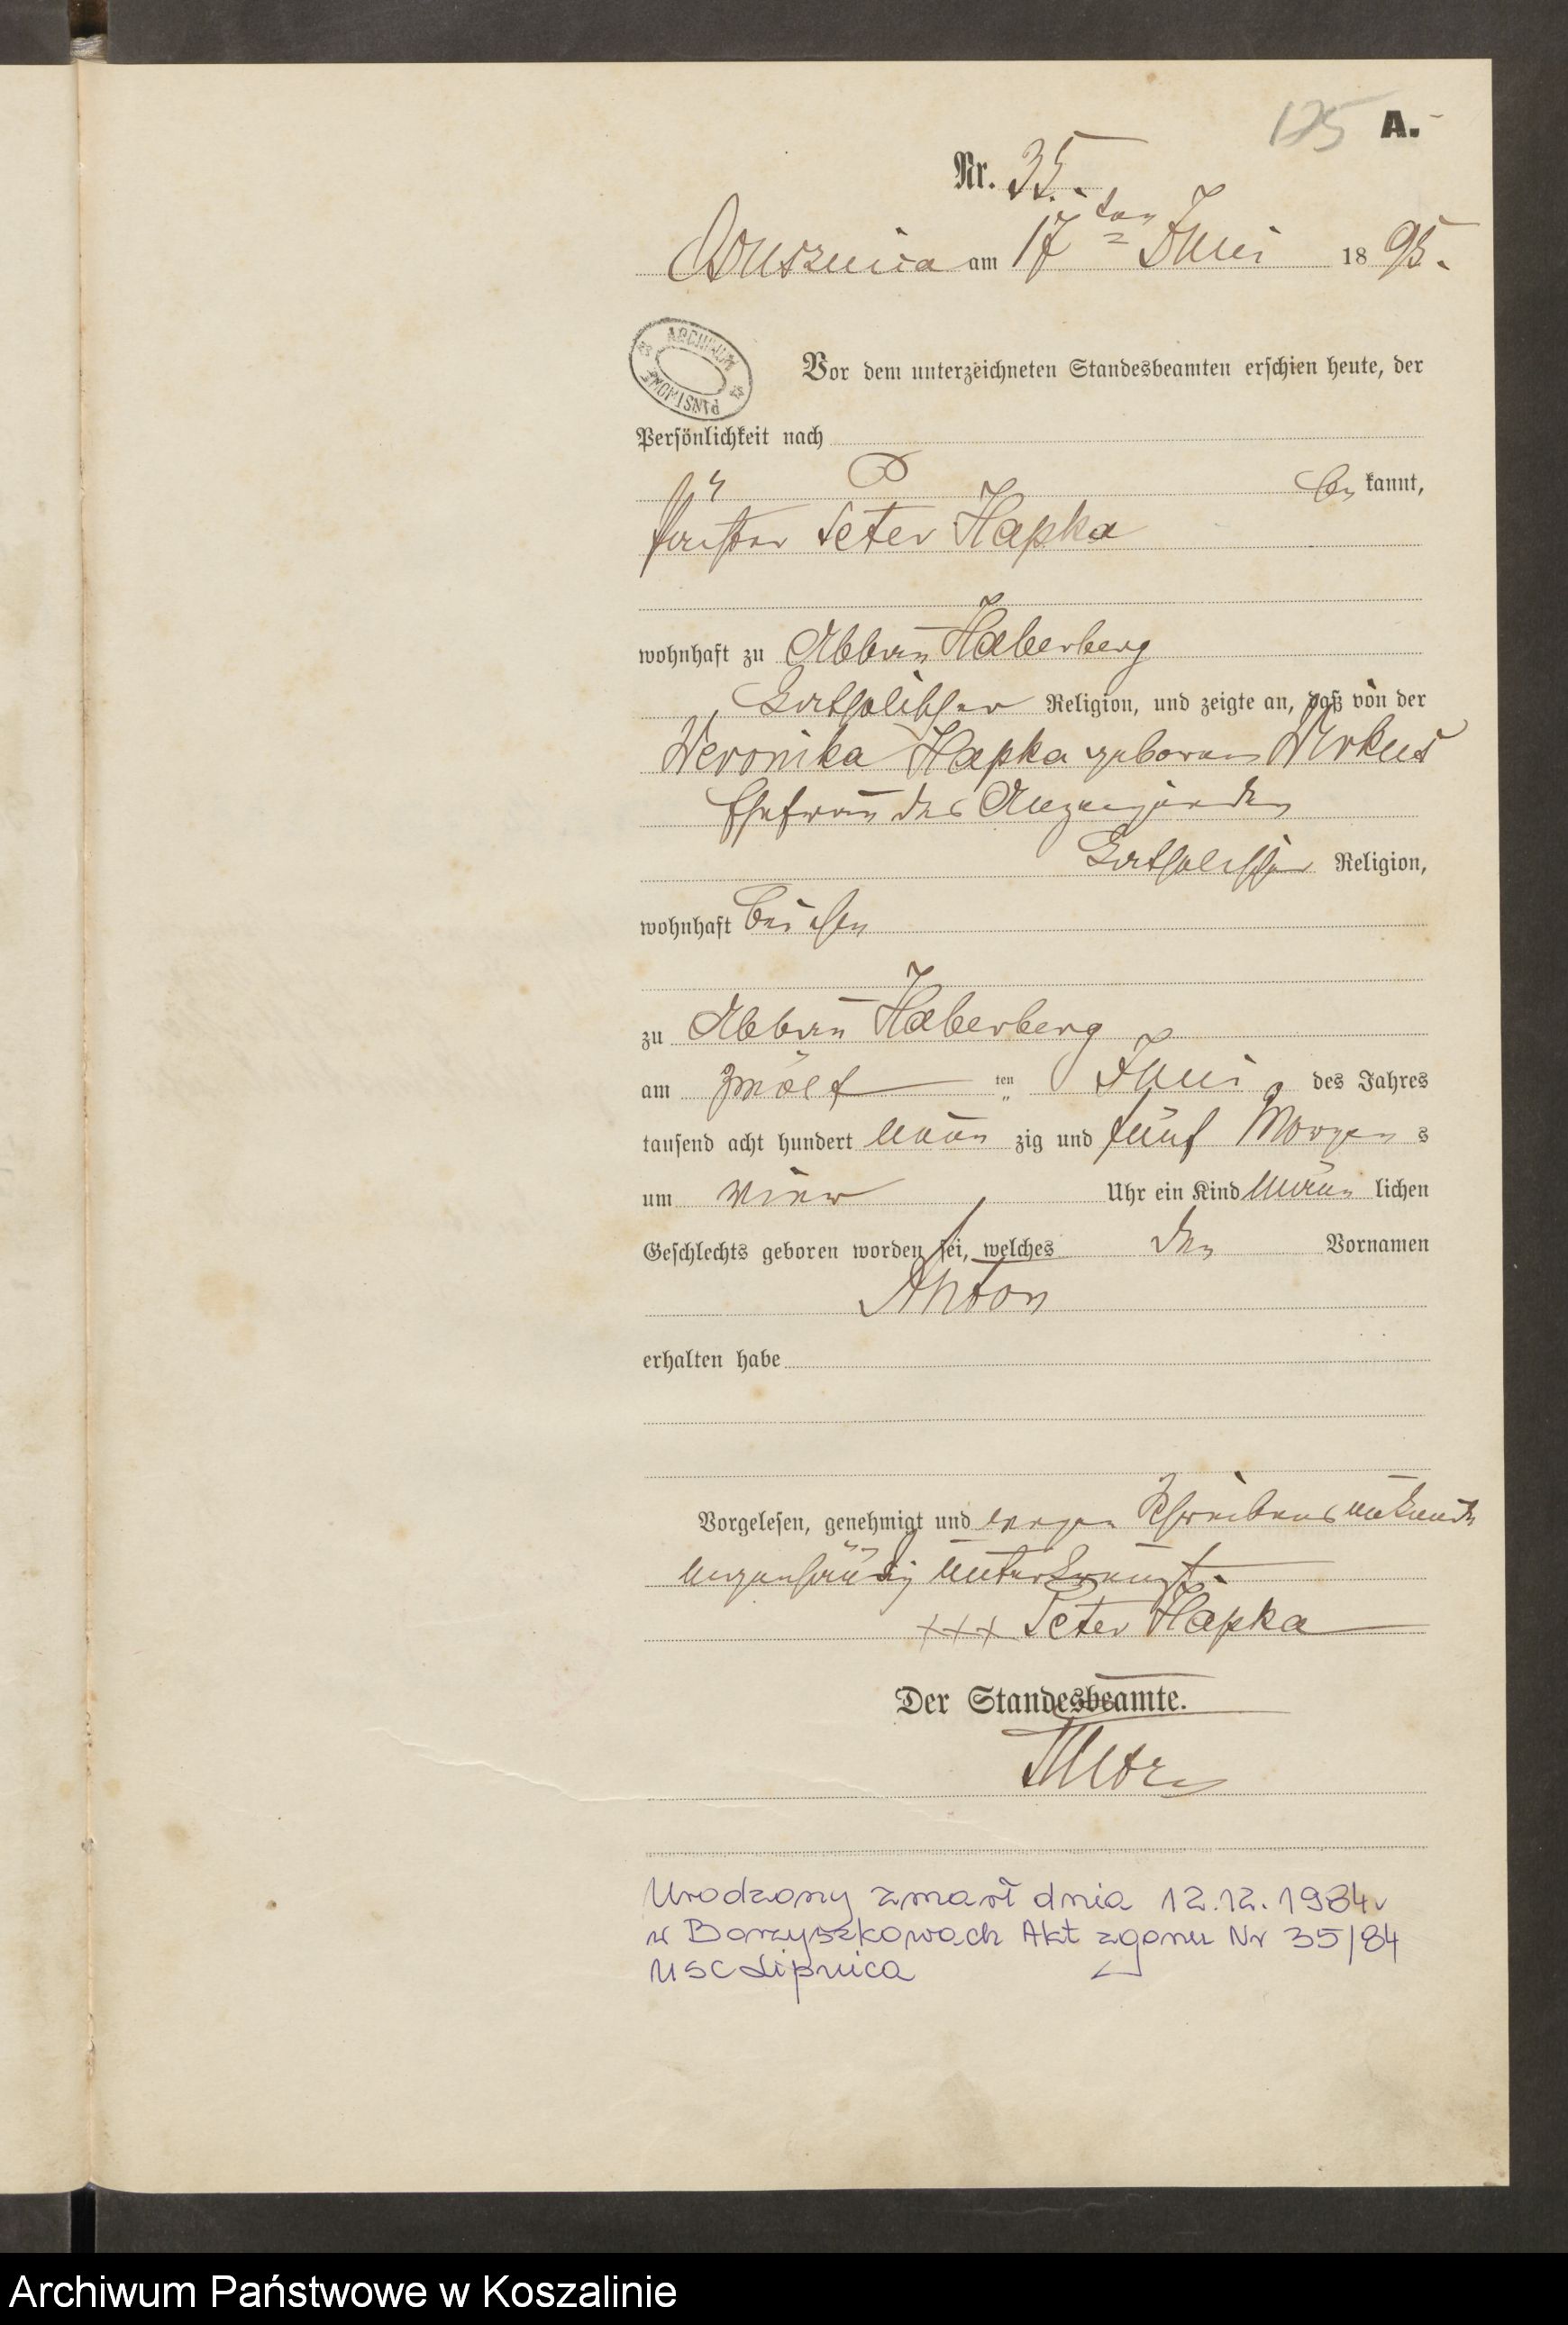 125 A.
Nr. 35.
am 17ten Juni 1895.
ARCHIWUM PAŃSTWOWE
Vor dem unterzeichneten Standesbeamten erschien heute, der
Persönlichkeit nach
be kannt,
Peter Hapka
wohnhaft zu Abbau Haberberg
katholischer Religion, und zeigte an, daß von der
Weronika Hapka geborenen Wirkus
Ehefrau des Anzeigenden
katholischer Religion,
wohnhaft bei ihm
zu Abbau Haberberg
am zwölf ten Juni des Jahres
tausend acht hundert neun zig und fünf Morgens
um vier Uhr ein Kind männ lichen
Geschlechts geboren worden sei, welches den Vornamen
Anton
erhalten habe
Vorgelesen, genehmigt und wegen Schreibensunkunde
unterkreuzt.
+++ Peter Hapka
Der Standesbeamte.
Urodzony zmarł dnia 12.12.1984r
w Borzyszkowach Akt zgonu Nr 35/84
USC Lipnica
Archiwum Państwowe w Koszalinie